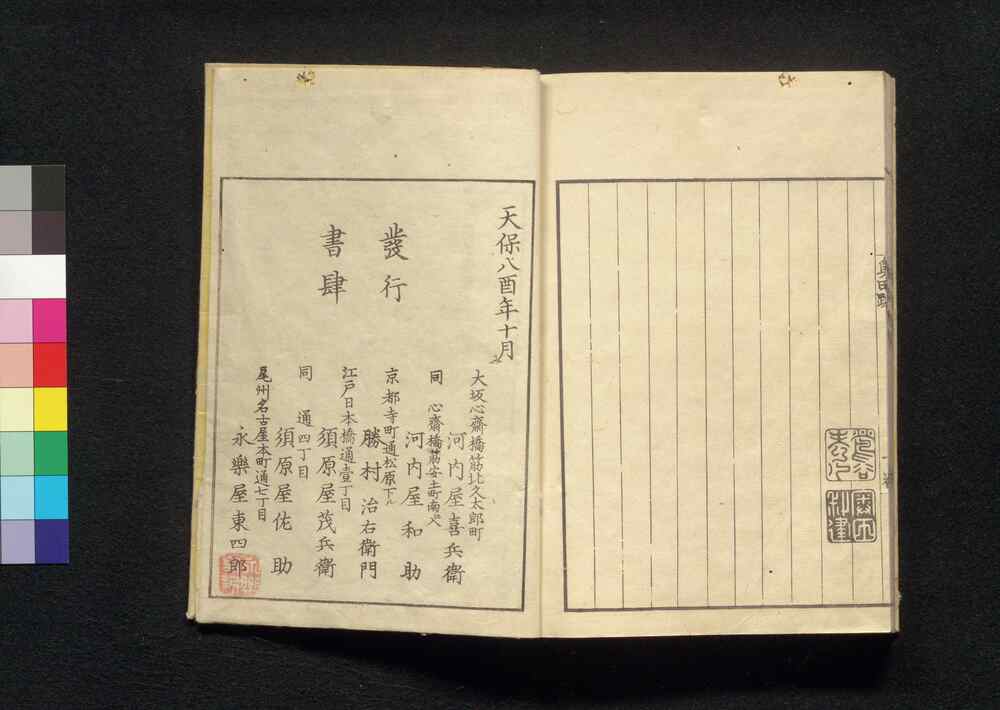 天保八酉年十月
發行
書肆
大坂心齋橋筋北久太郎町
河内屋喜兵衛
同 心齋橋筋安土町南入
河内屋和助
京都寺町通松原下ル
勝村治右衛門
江戸日本橋通壹丁目
須原屋茂兵衛
同 通四丁目
須原屋佐助
尾州名古屋本町通七丁目
永樂屋東四郎